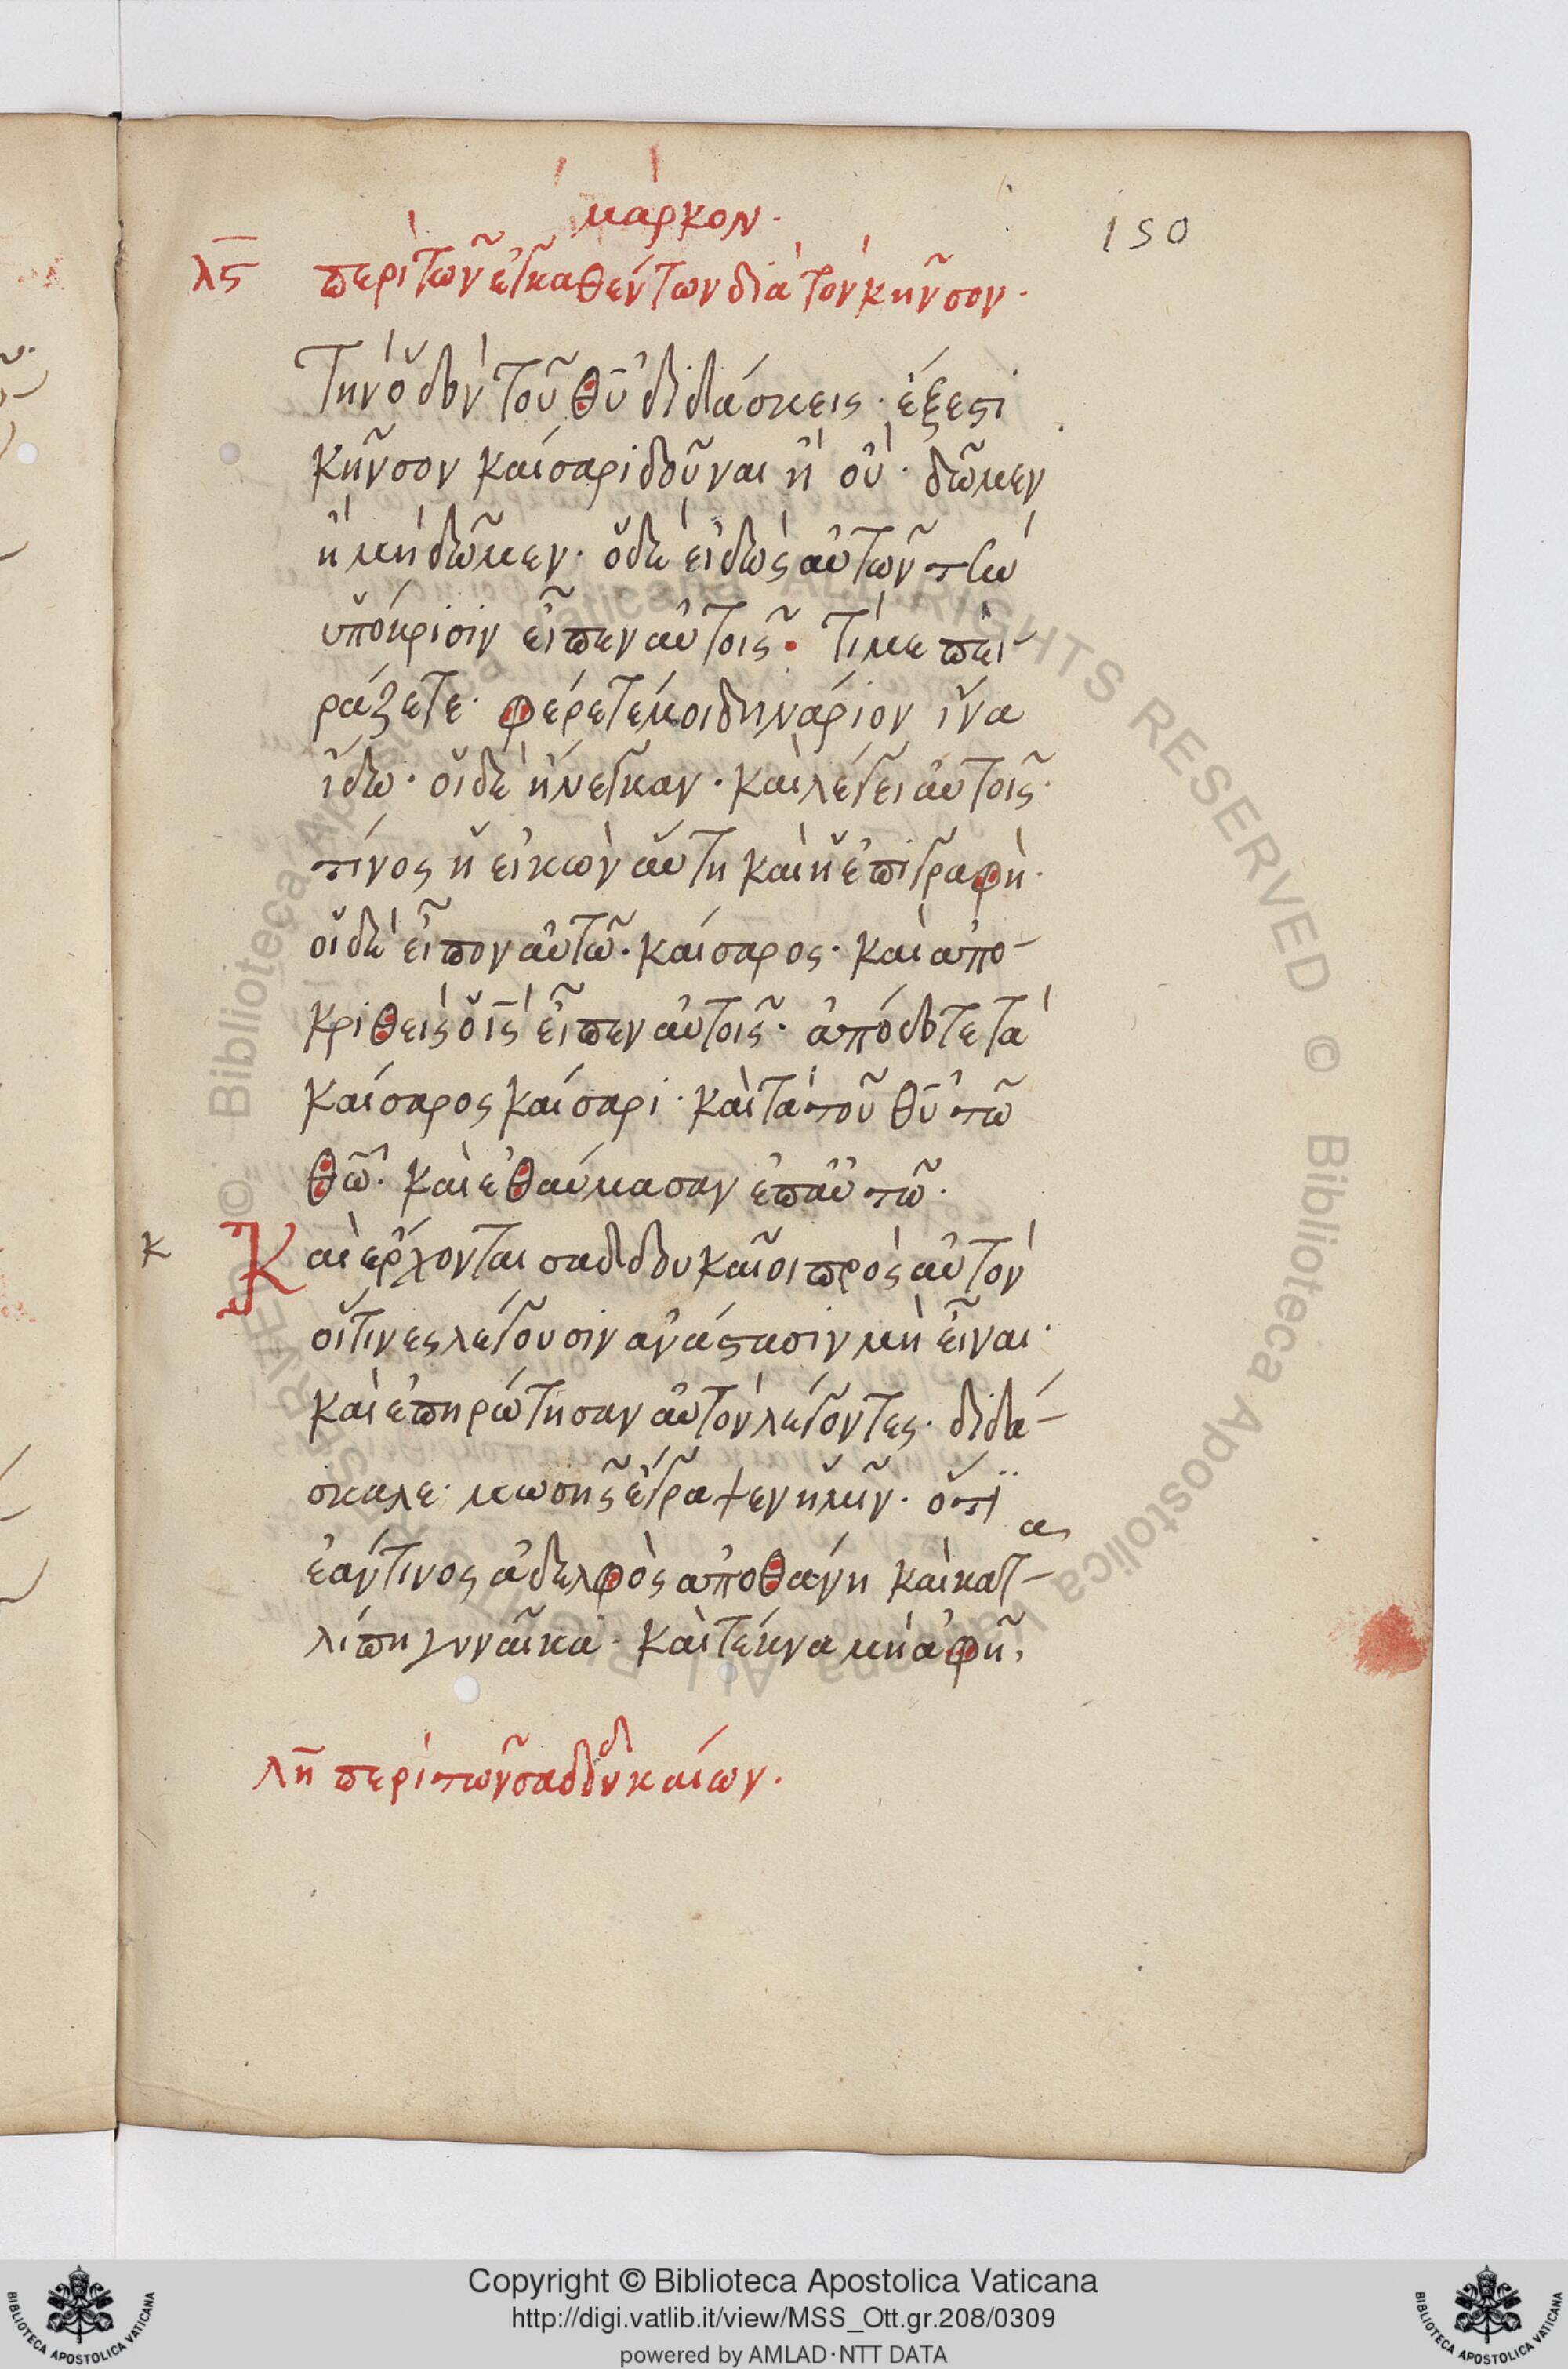 μάρκον·
150
λς περὶ τῶν ἐγκαθέντων διὰ τὸν κῆνσον·
τὴν ὁδὸν τοῦ θῦ διδάσκεις· ἔξεστι
κῆνσον καίσαρι δοῦναι ἢ οὔ· δῶμεν
ἢ μὴ δῶμεν· ὁ δὲ εἰδὼς αὐτῶν τὴν
ὑπόκρισιν εἶπεν αὐτοῖς· τί με πει-
ράζετε· φέρετέ μοι δηνάριον ἵνα
ἴδω· οἱ δὲ ἤνεγκαν· καὶ λέγει αὐτοῖς·
τίνος ἡ εἰκὼν αὕτη καὶ ἡ ἐπιγραφὴ·
οἱ δὲ εἶπον αὐτῶ· καίσαρος· καὶ ἀπο-
κριθεὶς ὁ ις εἶπεν αὐτοῖς· ἀπόδοτε τὰ
καίσαρος καίσαρι· καὶ τὰ τοῦ θῦ τῶ
θῶ· καὶ ἐθαύμασαν ἐπ αὐτῶ·
κ Καὶ ἔρχονται σαδδουκαῖοι πρὸς αὐτὸν
οἵτινες λέγουσιν ἀνάστασιν μὴ εἶναι·
καὶ ἐπηρώτησαν αὐτὸν λέγοντες· διδά-
σκαλε· μωσῆς ἔγραψεν ἡμῖν· ὅτι
ἐάν τινος ἀδελφὸς ἀποθάνη καὶ κατα-
λίπη γυναῖκα· καὶ τέκνα μὴ ἀφῆ,
λη περὶ τῶν σαδδουκαίων·
Copyright © Biblioteca Apostolica Vaticana
http://digi.vatlib.it/view/MSS_Ott.gr.208/0309
powered by AMLAD·NTT DATA